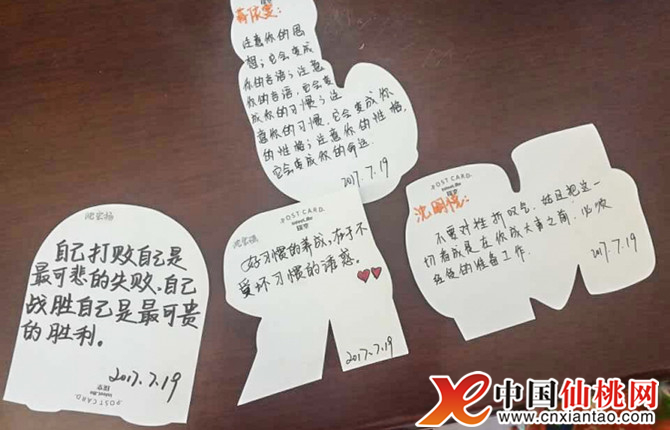 蒋依雯：
注意你的思
想；它会变成
你的言语；注意
你的言语，它会变
成你的习惯；注
意你的习惯，它会变成你
的性格；注意你的性格，
它会变成你的命运.
2017.7.19
沈宏扬
自己打败自己是
最可悲的失败、自己
战胜自己是最可贵
的胜利。
2017.7.19
POST CARD.
POST CARD.
沈宏
好习惯的养成，在于不
受坏习惯的诱惑。
2017.7.19
POST CARD.
沈明悦：
不要对挫折叹气，姑且把这一
切看成是在你成大事之前，必须
经受的准备工作.
2017.7.19
中国仙桃网
www.cnxiantao.com